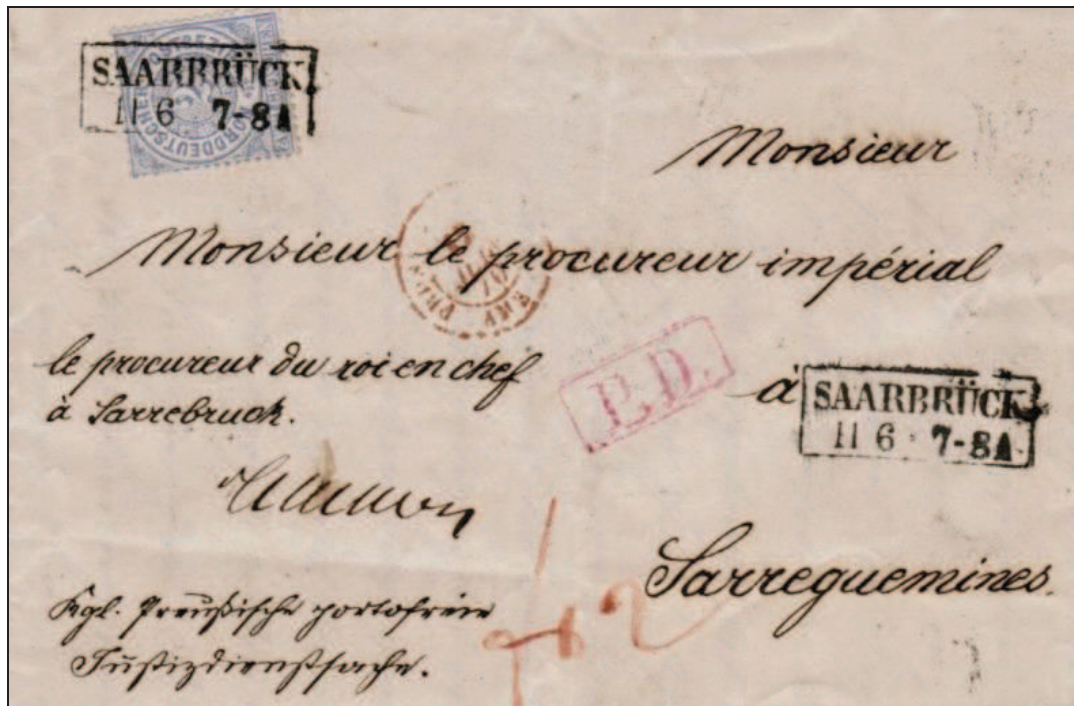 SAARBRÜCK
11 6 7-8A
NORDDEUTSCHER
Monsieur
Monsieur le procureur impérial
le procureur du roi en chef
à Sarrebruck.
P.D.
à
SAARBRÜCK
11 6 7-8A
Sarreguemines.
Kgl. Preußische portofreie
Justizdienstsache.